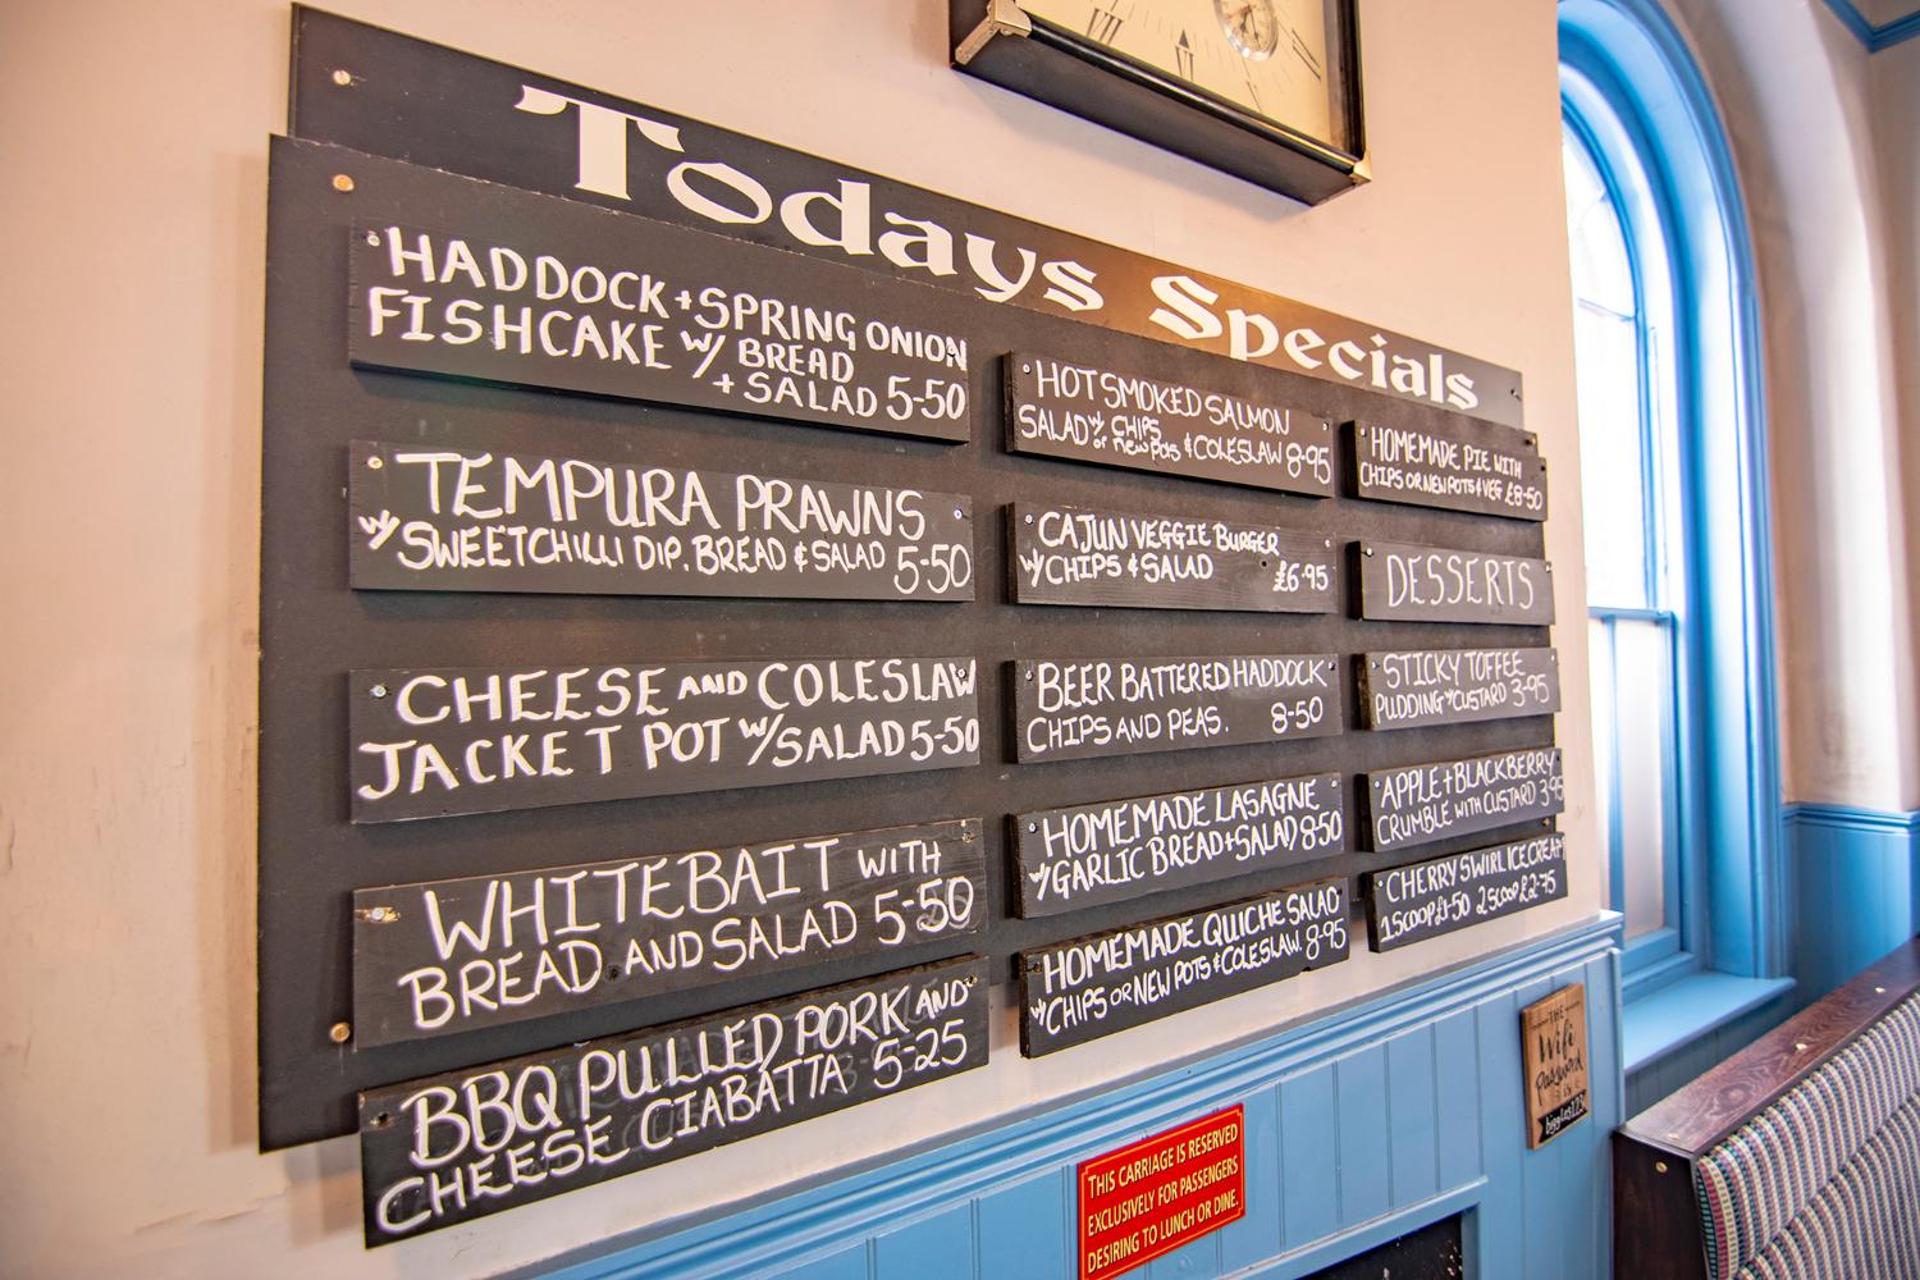 VII
VI
Todays Specials
HADDOCK + SPRING ONION
FISHCAKE W/ BREAD
+ SALAD 5-50
TEMPURA PRAWNS
W/ SWEETCHILLI DIP. BREAD & SALAD 5-50
CHEESE AND COLESLAW
JACKET POT W/ SALAD 5-50
WHITEBAIT WITH
BREAD AND SALAD 5-50
BBQ PULLED PORK AND
CHEESE CIABATTA 5-25
HOT SMOKED SALMON
SALAD W/ CHIPS
or new pots & COLESLAW 8-95
CAJUN VEGGIE BURGER
W/ CHIPS & SALAD £6-95
BEER BATTERED HADDOCK
CHIPS AND PEAS. 8-50
HOMEMADE LASAGNE
W/ GARLIC BREAD + SALAD 8-50
HOMEMADE QUICHE SALAD
W/ CHIPS OR NEW POTS & COLESLAW. 8-95
HOMEMADE PIE WITH
CHIPS OR NEW POTS & VEG £8-50
DESSERTS
STICKY TOFFEE
PUDDING W/ CUSTARD 3-95
APPLE + BLACKBERRY
CRUMBLE WITH CUSTARD 3-95
CHERRY SWIRL ICECREAM
1 SCOOP £1-50 2 SCOOP £2-75
THE
Wifi
password
IS
biggles123
THIS CARRIAGE IS RESERVED
EXCLUSIVELY FOR PASSENGERS
DESIRING TO LUNCH OR DINE.